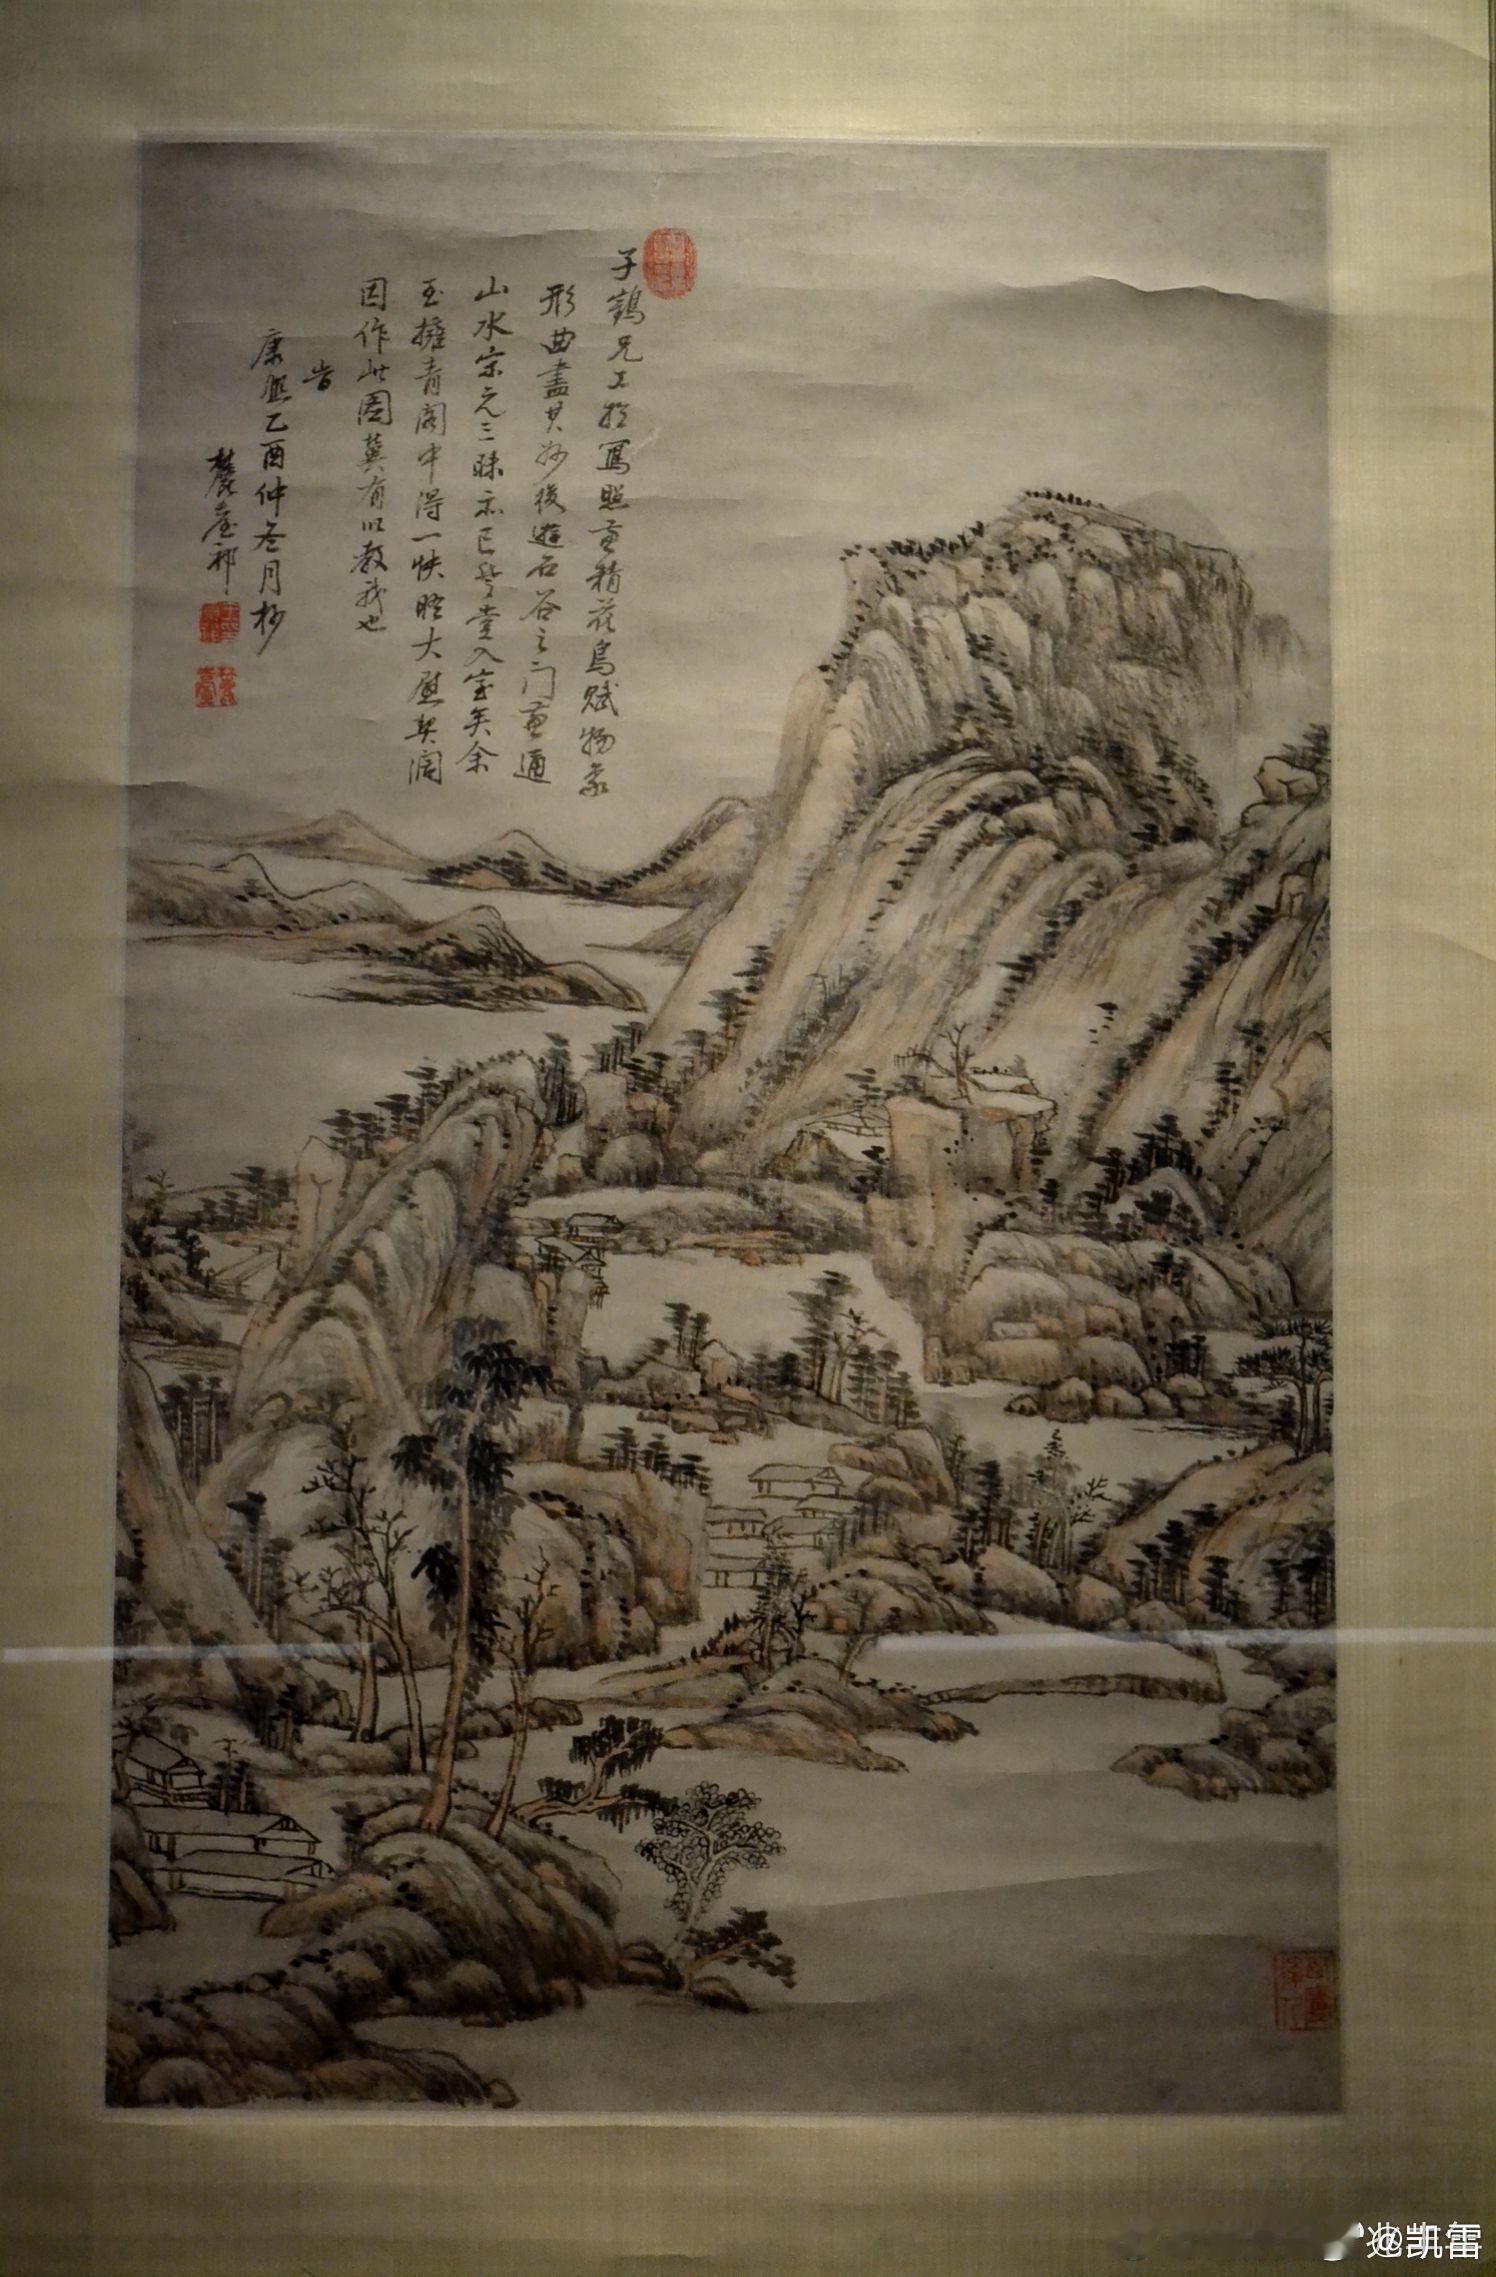 子鶴兄工於寫照兼精花鳥賦物象
形曲盡其妙後遊石谷之門兼通
山水宗元三昧亦已登堂入室矣余
至擁青閣中得一快晤大慰契闊
因作此圖冀有以教我也
旹
康熙乙酉仲冬月杪
麓臺祁
@凱雷